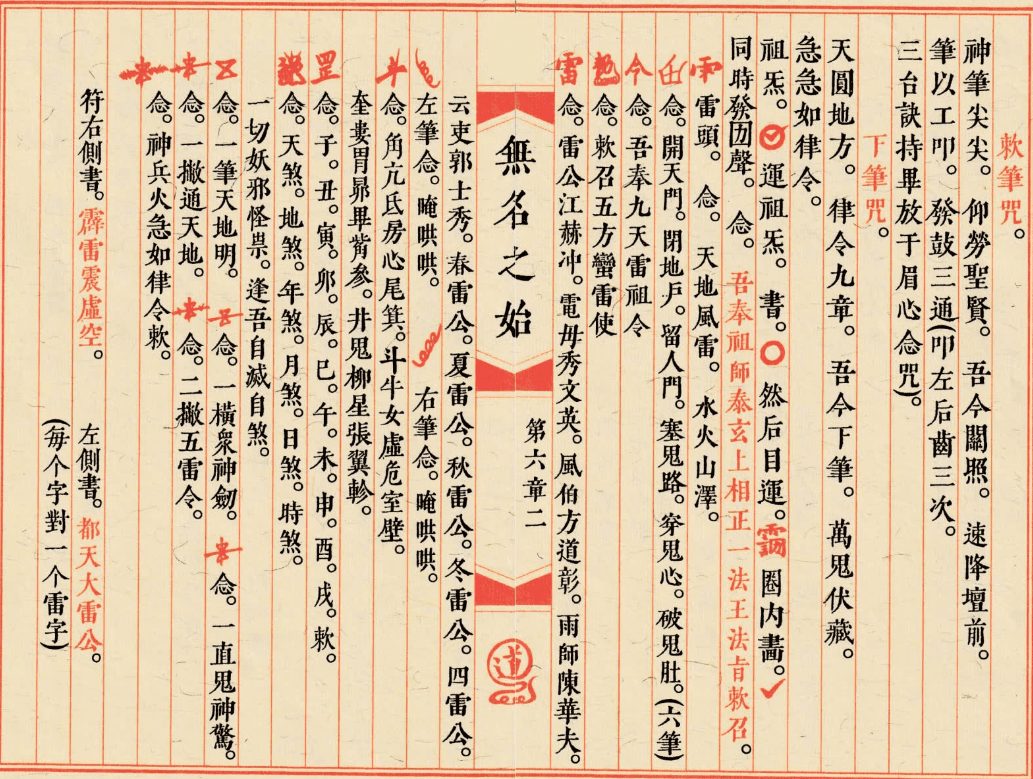 敕筆咒。
神筆尖尖。仰勞聖賢。吾今關照。速降壇前。
筆以工叩。發鼓三通(叩左后齒三次。
三台訣持畢放于眉心念咒)。
下筆咒。
天圓地方。律令九章。吾今下筆。萬鬼伏藏。
急急如律令。
祖炁。運祖炁。書。然后目運。圈内畵。
同時發囙聲。念。吾奉祖師泰玄上相正一法王法旨敕召。
雷頭。念。天地風雷。水火山澤。
念。開天門。閉地戶。留人門。塞鬼路。穿鬼心。破鬼肚。(六筆)
令念。吾奉九天雷祖令
念。敕召五方蠻雷使
雷念。雷公江赫冲。電毋秀文英。風伯方道彰。雨師陳華夫。
無名之始
第六章二
道
云吏郭士秀。春雷公。夏雷公。秋雷公。冬雷公。四雷公。
左筆念。唵哄哄。右筆念。唵哄哄。
斗念。角亢氐房心尾箕。斗牛女虛危室壁。
奎婁胃昴畢觜參。井鬼柳星張翼軫。
罡念。子。丑。寅。卯。辰。巳。午。未。申。酉。戌。敕。
念。天煞。地煞。年煞。月煞。日煞。時煞。
一切妖邪怪祟。逢吾自滅自煞。
念。一筆天地明。念。一橫衆神劒。念。一直鬼神驚。
念。一撇通天地。念。二撇五雷令。
念。神兵火急如律令敕。
符右側書。霹雷震虛空。左側書。都天大雷公。
(每个字對一个雷字)